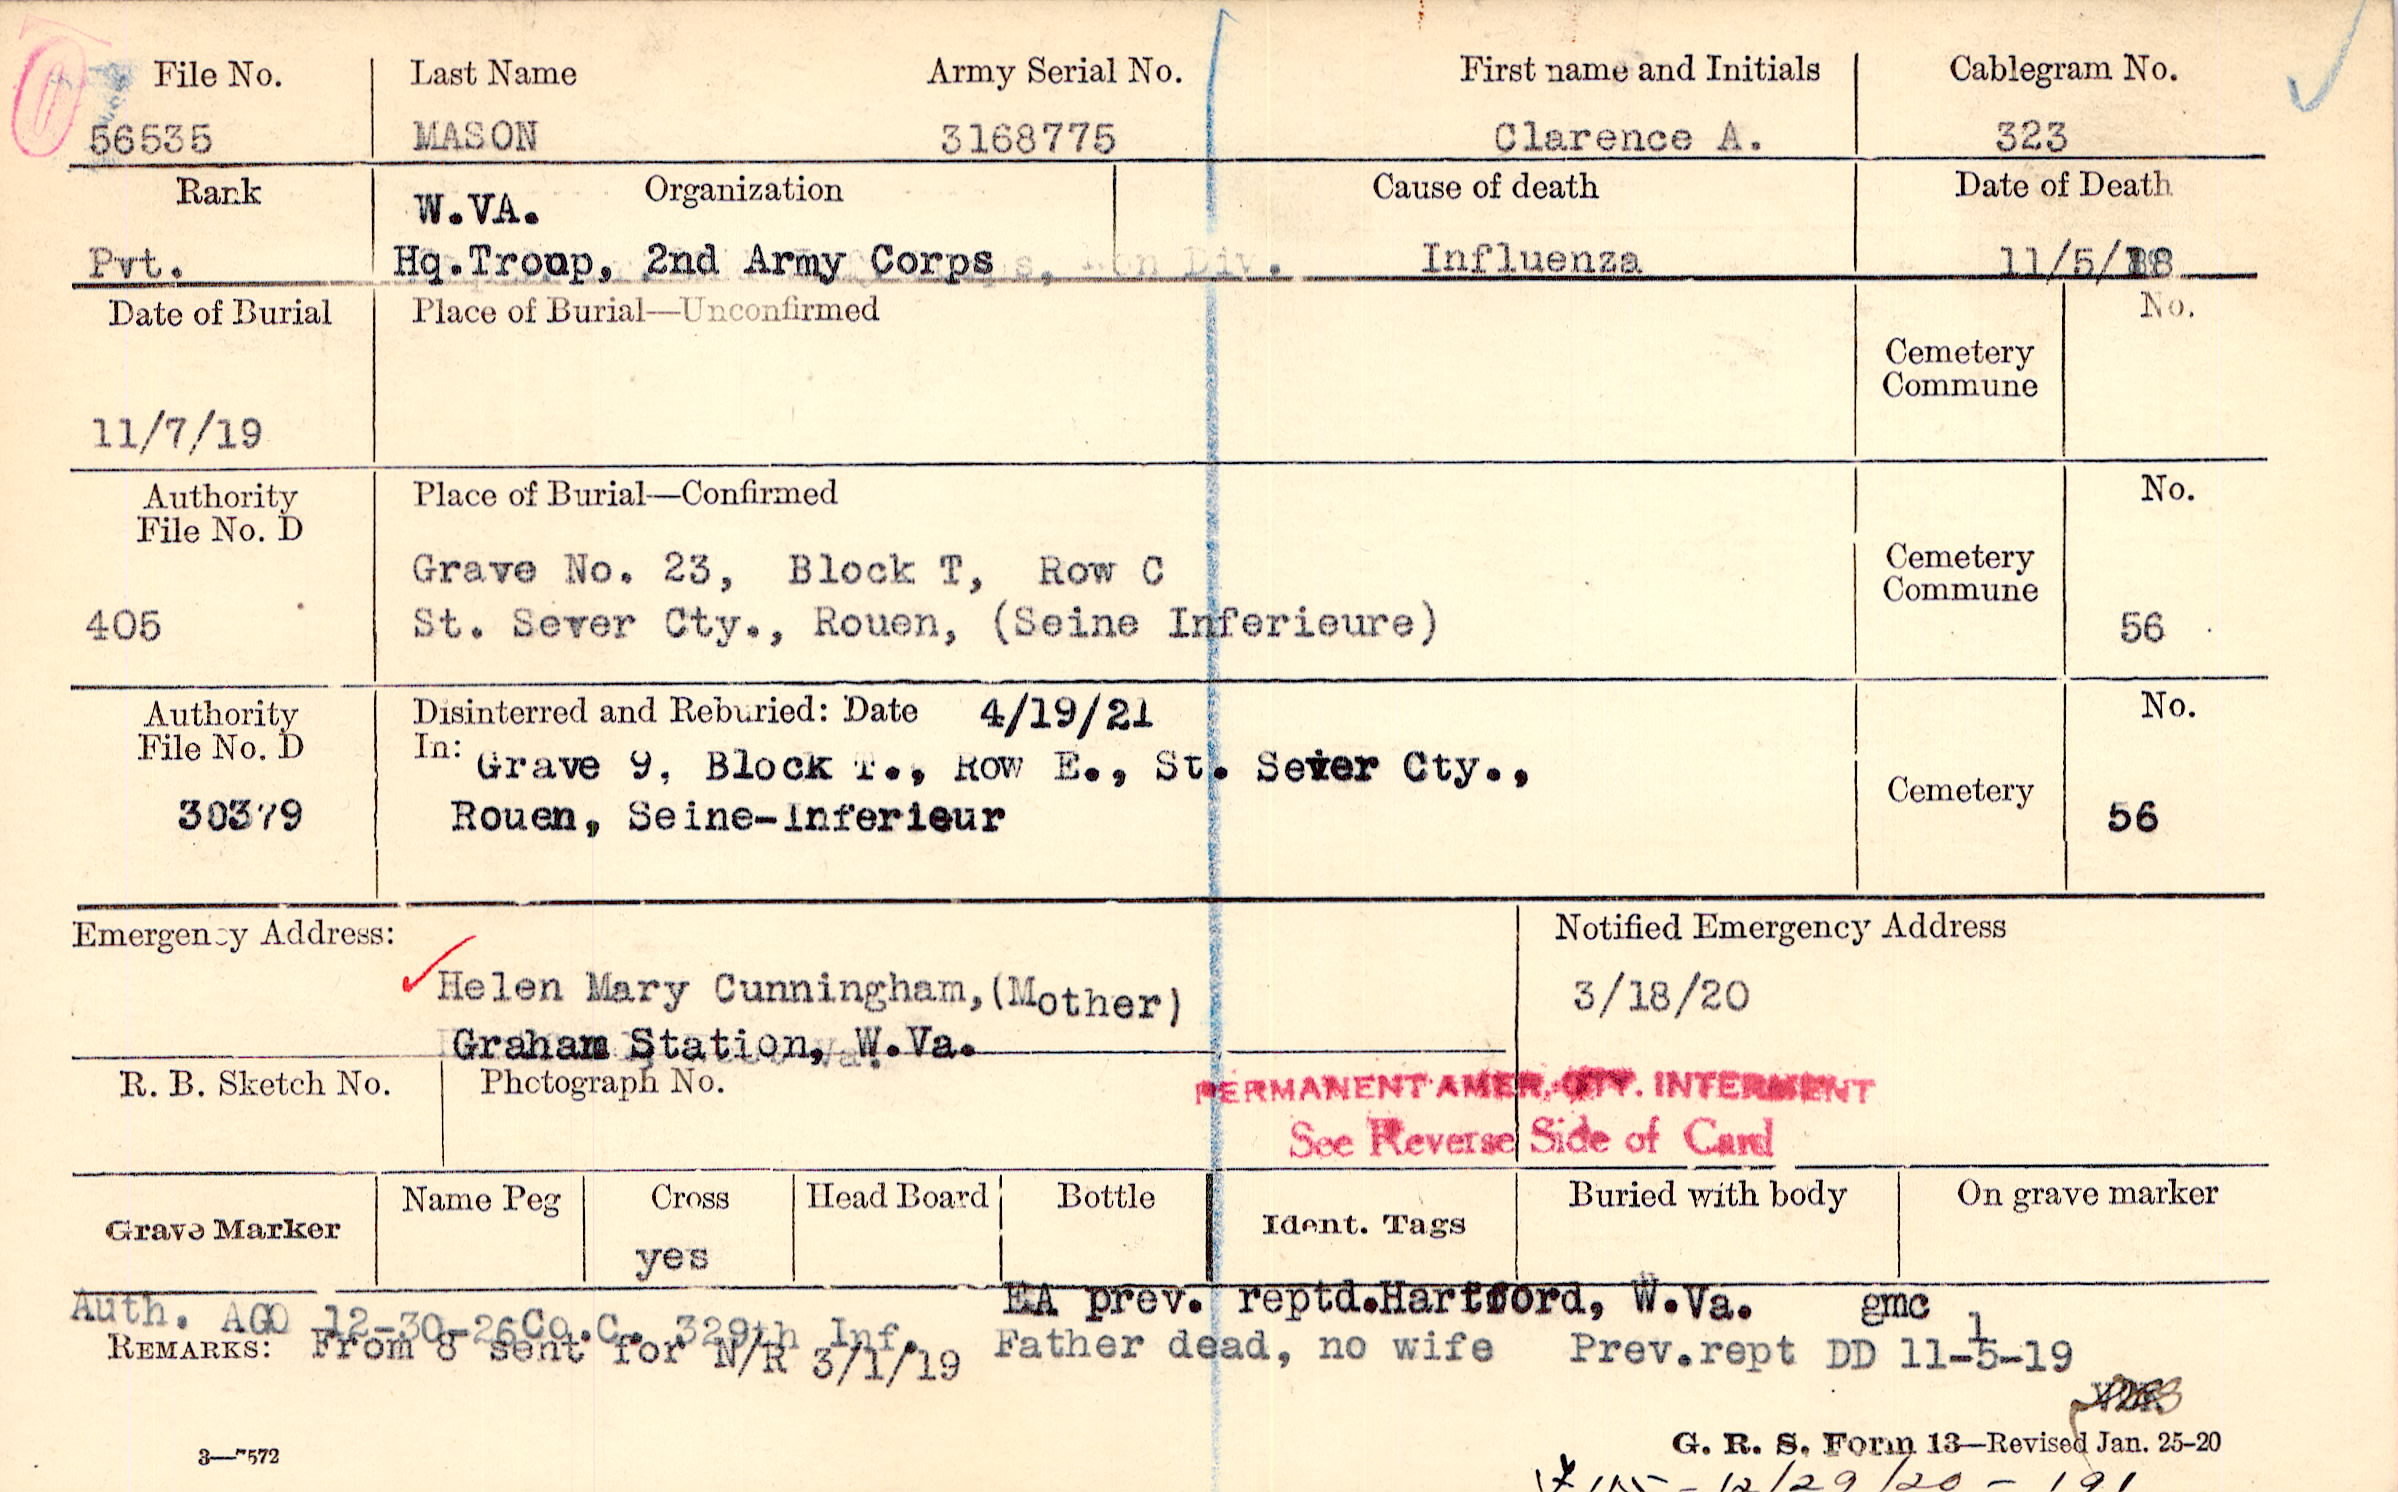 File No. Last Name Army Serial No. First name and Initials Cablegram No.
56535 MASON 3168775 Clarence A. 323
Rank Organization Cause of death Date of Death
W.VA.
Pvt. Hq.Troop, 2nd Army Corps Influenza 11/5/18
Date of Burial Place of Burial—Unconfirmed No.
Cemetery
Commune
11/7/19
Authority Place of Burial—Confirmed No.
File No. D
Cemetery
Grave No. 23, Block T, Row C
Commune
405 St. Sever Cty., Rouen, (Seine Inferieure) 56
Authority Disinterred and Reburied: Date 4/19/21 No.
File No. D In: Grave 9, Block T., Row E., St. Sever Cty.,
Cemetery
30379 Rouen, Seine-Inferieur 56
Emergency Address: Notified Emergency Address
Helen Mary Cunningham,(Mother) 3/18/20
Graham Station, W.Va.
R. B. Sketch No. Photograph No.
PERMANENT AMER. CTY. INTERMENT
See Reverse Side of Card
Grave Marker Name Peg Cross Head Board Bottle Ident. Tags Buried with body On grave marker
yes
Auth. AGO 12-30-26 Co.C. 329th Inf. EA prev. reptd.Hartford, W.Va. gmc
REMARKS: From 8 sent for N/R 3/1/19 Father dead, no wife Prev.rept DD 11-5-19
1
3—7572
G. R. S. Form 13—Revised Jan. 25-20
12/29/20 - 191